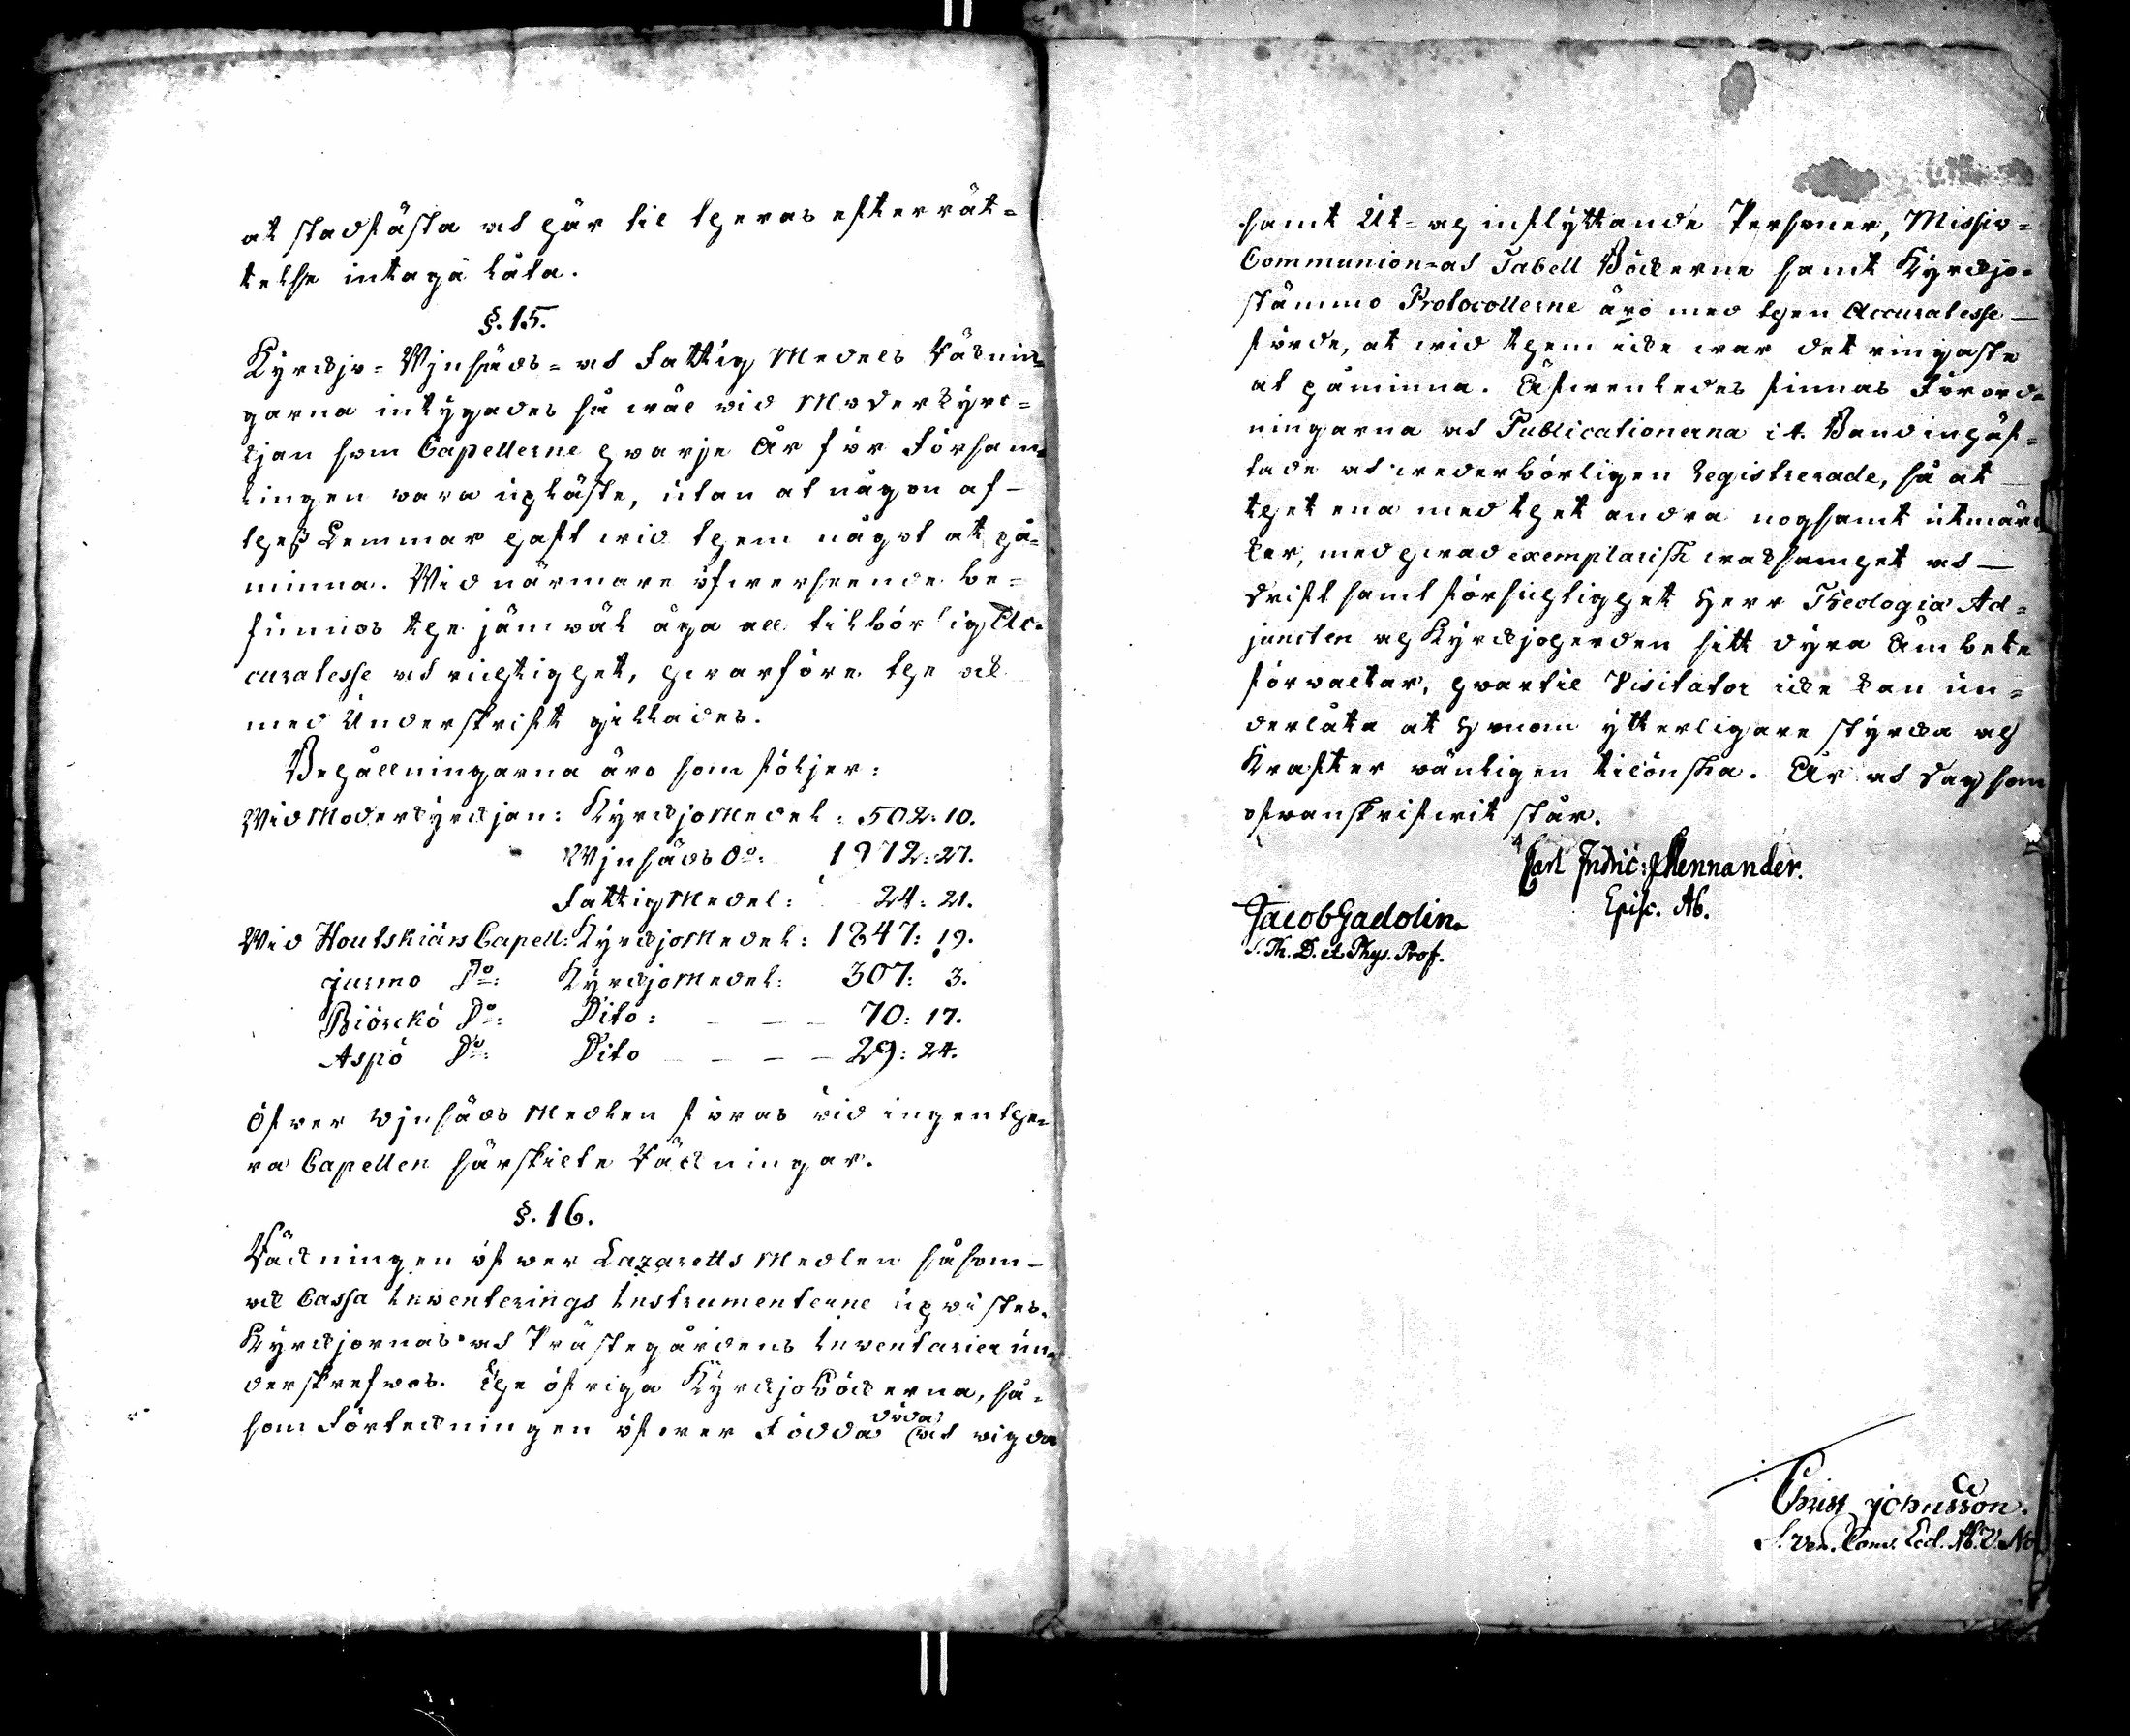 at stadfästa och här til theras efterrät-
telse intagä låta.
§. 15.
Kyrckjo- Wjnsäds- och Fattig Medels Räknin-
garna intygades så wäl vid Moderkyrc-
kjan som Capellerne hvarje År för Församm-
lingen vara upläste, utan at någon af
thess Lemmar haft wid them något at på-
minna. Wid närmare öfwerseende be-
funnos the jämwäl äga all tilbörlig Ac-
curatesse och richtighet, hwarföre the ock
med Underskrift gillades.
Behållningarna äro som följer:
Wid Moderkyrckjan: Kyrckjo Medel: 502: 10.
Wjnsäds do: 1972: 27.
Fattig Medel: 24: 21.
Wid Houtskiärs Capell: Kyrckjo Medel: 1847: 19.
Jurmo Do: Kyrckjo Medel: 307: 3.
Biörckö Do: Dito: — — 70: 17.
Aspö Do: Dito — — — 29: 24.
Öfver Wjnsäds Medlen föras vid ingen the-
ra Capellen särskilte Räckningar.
§. 16.
Räckningen öfwer Lazaretts Medlen såsom
ock Cassa Inventerings Instrumenterne upvistes.
Kyrckjornas och Prästegårdens Inventarier un-
derskrefvos. The öfriga Kyrckjoböckerna, så-
som Förteckningen öfwer Födda döda och vigda
samt Ut- och inflyttande Personer, Missiv-
Communion- och Tabell Böckerne samt Kyrckjo-
stämmo Protocollerne äro med then Accuratesse
förde, at wid them icke war det ringaste
at påminna. Äfwenledes finnas Förord-
ningarna och Publicationerna i 4. Band inhäf-
tade och wederbörligen Registrerade, så at
thet ena med thet andra nogsamt utmär-
ker, med hwad exemplarisk wacksamhet och
drift samt försichtighet Herr Theologiæ Ad-
juncten och Kyrckjoherden sitt dyra Ämbete
förvaltar, hvartil Visitator icke kan un-
derlåta at Honom ytterligare styrcka och
Krafter vänligen tilönska. År och dag som
ofvanskrifwit står.
Carl Fredric: Mennander.
Episc. Ab.
Jacob Gadolin.
S. Th. D. et Phys. Prof.
Christ Johnsson.
S. Ven. Cons. Eccl. Ab. V. No